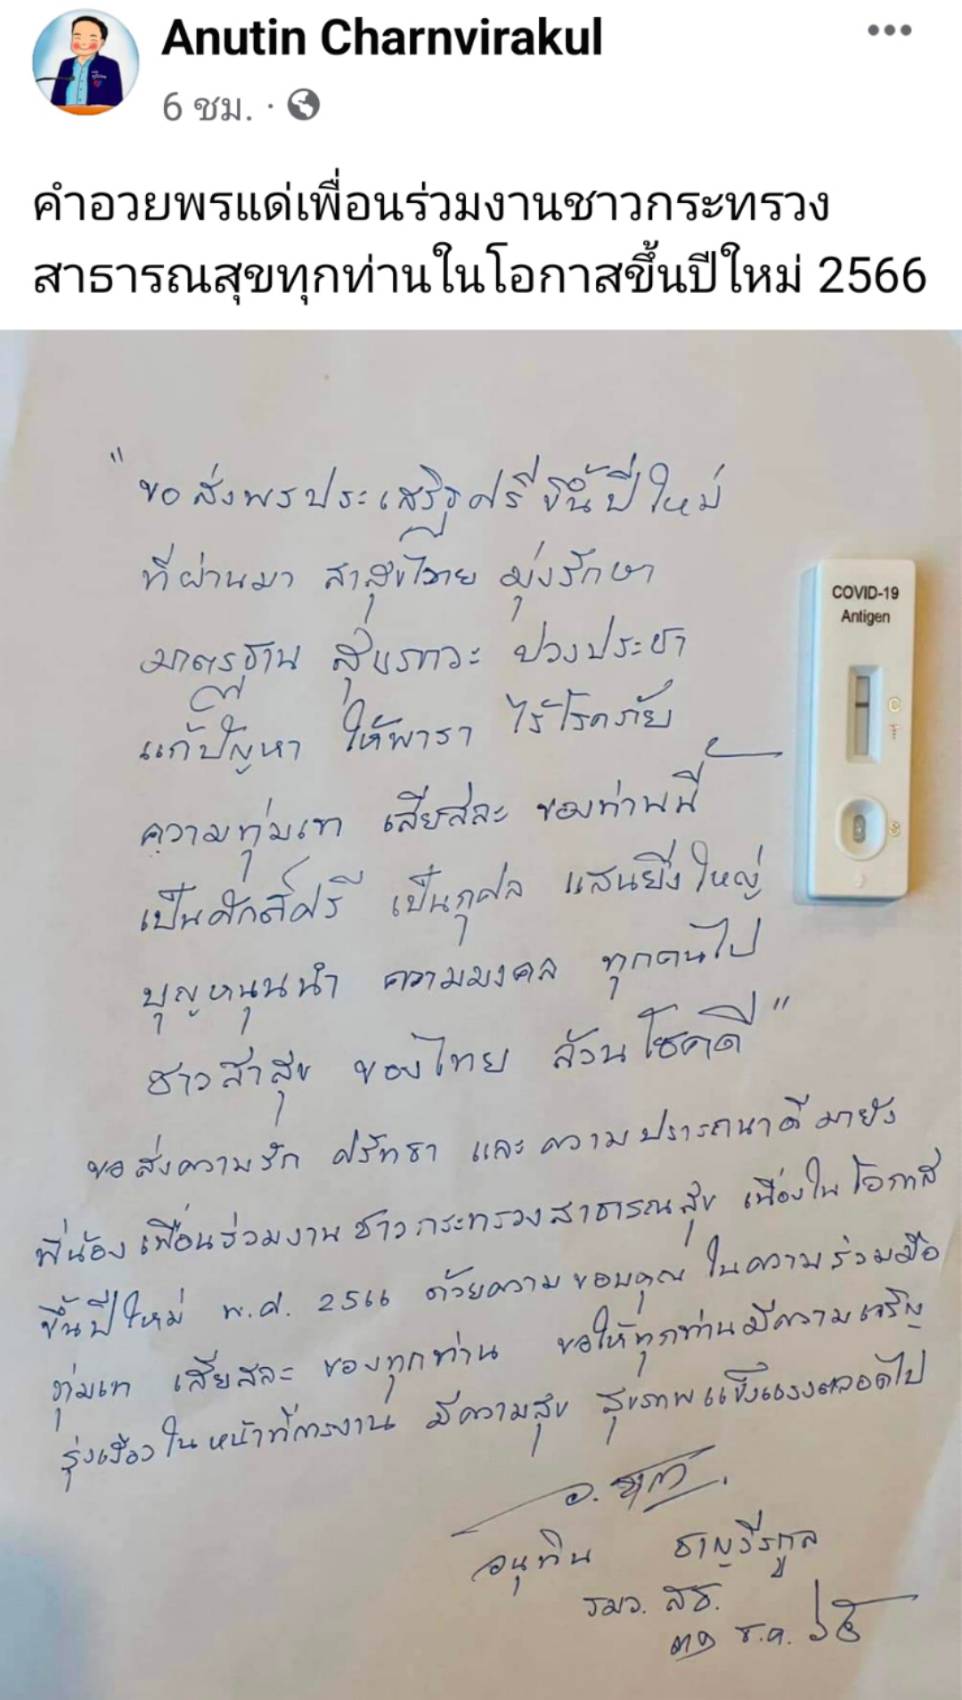 Anutin Charnvirakul
6 ชม.
คำอวยพรแด่เพื่อนร่วมงานชาวกระทรวง
สาธารณสุขทุกท่านในโอกาสขึ้นปีใหม่ 2566
"ขอส่งพรประเสริฐศรี ขึ้นปีใหม่
ที่ผ่านมา สาสุขไทย มุ่งรักษา
มาตรฐาน สุขภาวะ ปวงประชา
แก้ปัญหา ให้พารา ไร้โรคภัย
ความทุ่มเท เสียสละ ของท่านนี้
เป็นศักดิ์ศรี เป็นกุศล แสนยิ่งใหญ่
บุญหนุนนำ ความมงคล ทุกคนไป
ชาวสาสุข ของไทย ล้วนโชคดี"
ขอส่งความรัก ศรัทธา และความปรารถนาดีมายัง
พี่น้อง เพื่อนร่วมงาน ชาวกระทรวงสาธารณสุข เนื่องในโอกาส
ขึ้นปีใหม่ พ.ศ. 2566 ด้วยความขอบคุณ ในความร่วมมือ
ทุ่มเท เสียสละ ของทุกท่าน ขอให้ทุกท่านมีความเจริญ
รุ่งเรือง ในหน้าที่การงาน มีความสุข สุขภาพแข็งแรงตลอดไป
อนุทิน ชาญวีรกูล
รมว. สธ.
๓๑ ธ.ค. ๖๕
COVID-19
Antigen
C
T
S